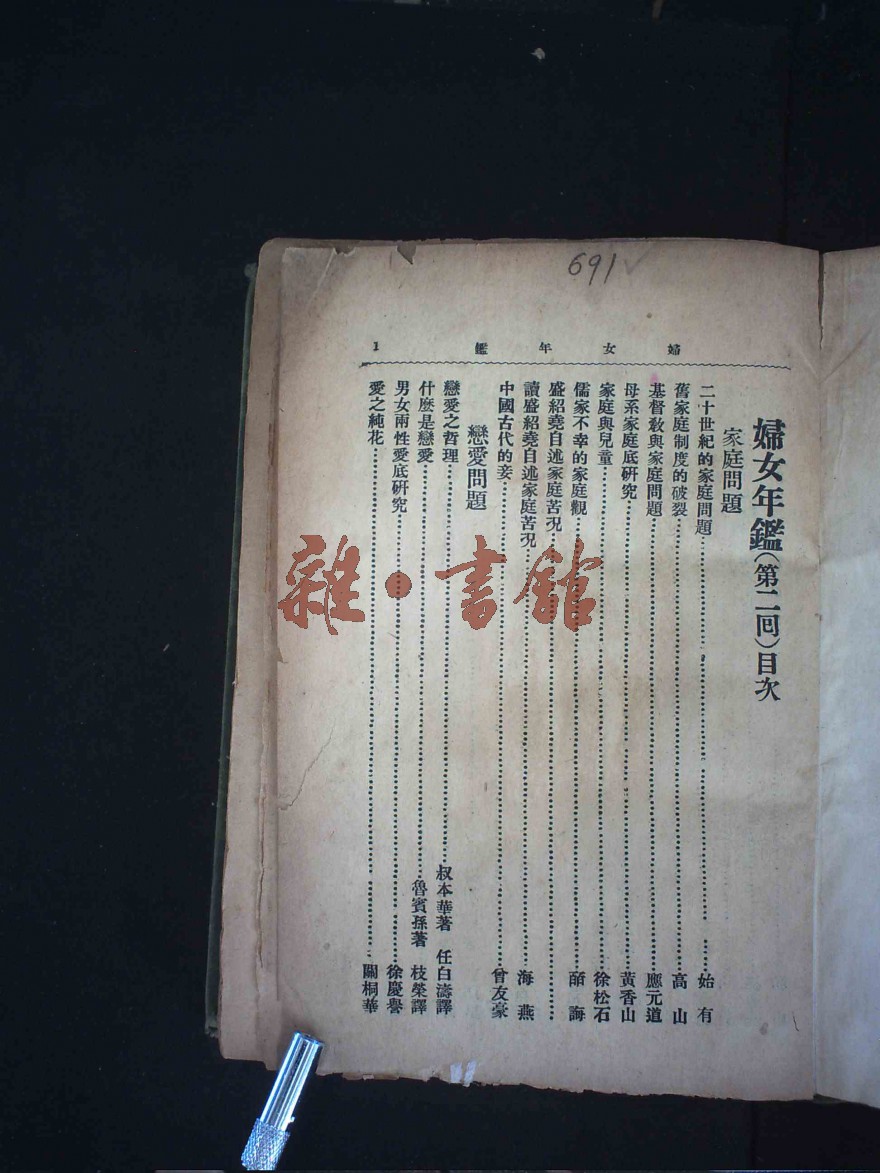 691✓
婦女年鑑 1
婦女年鑑(第二回)目次
家庭問題
二十世紀的家庭問題……始有
舊家庭制度的破裂……高山
基督教與家庭問題……應元道
母系家庭底研究……黃香山
家庭與兒童……徐松石
儒家不幸的家庭觀……㖧誨
盛紹堯自述家庭苦況……
讀盛紹堯自述家庭苦況……海燕
中國古代的妾……曾友豪
戀愛問題
戀愛之哲理……叔本華著 任白濤譯
什麽是戀愛……魯賓孫著 枝榮譯
男女兩性愛底研究……徐慶譽
愛之純花……關桐華
雜·書館